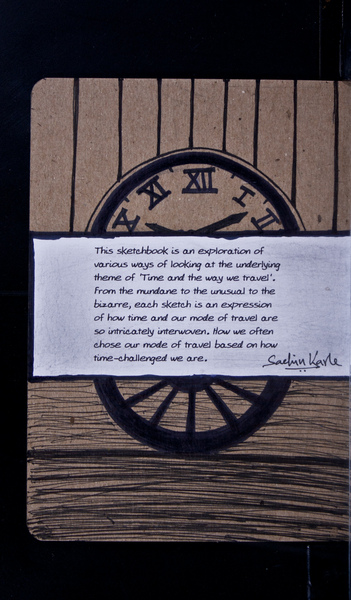 X XI XII I II
This sketchbook is an exploration of
various ways of looking at the underlying
theme of 'Time and the way we travel'.
From the mundane to the unusual to the
bizarre, each sketch is an expression
of how time and our mode of travel are
so intricately interwoven. How we often
chose our mode of travel based on how
time-challenged we are.
Sachin Karle